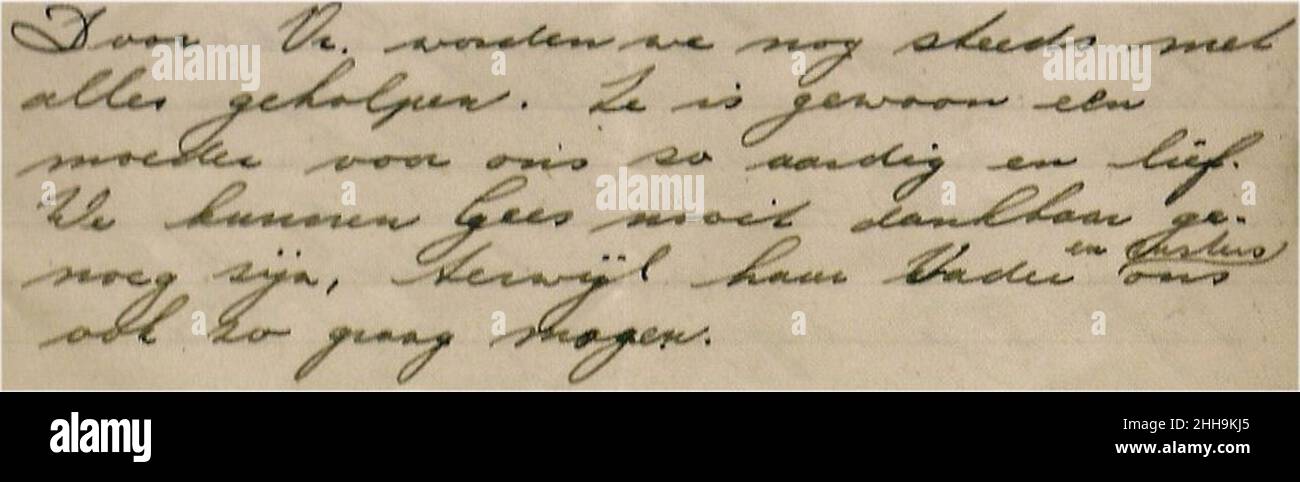 Door Vr. worden we nog steeds met
alles geholpen. Ze is gewoon een
moeder voor ons zo aardig en lief.
We kunnen Gees nooit dankbaar ge-
en zusters
noeg zijn, terwijl haar Vader ons
ook zo graag mogen.
alamy
Image ID: 2HH9KJ5
www.alamy.com